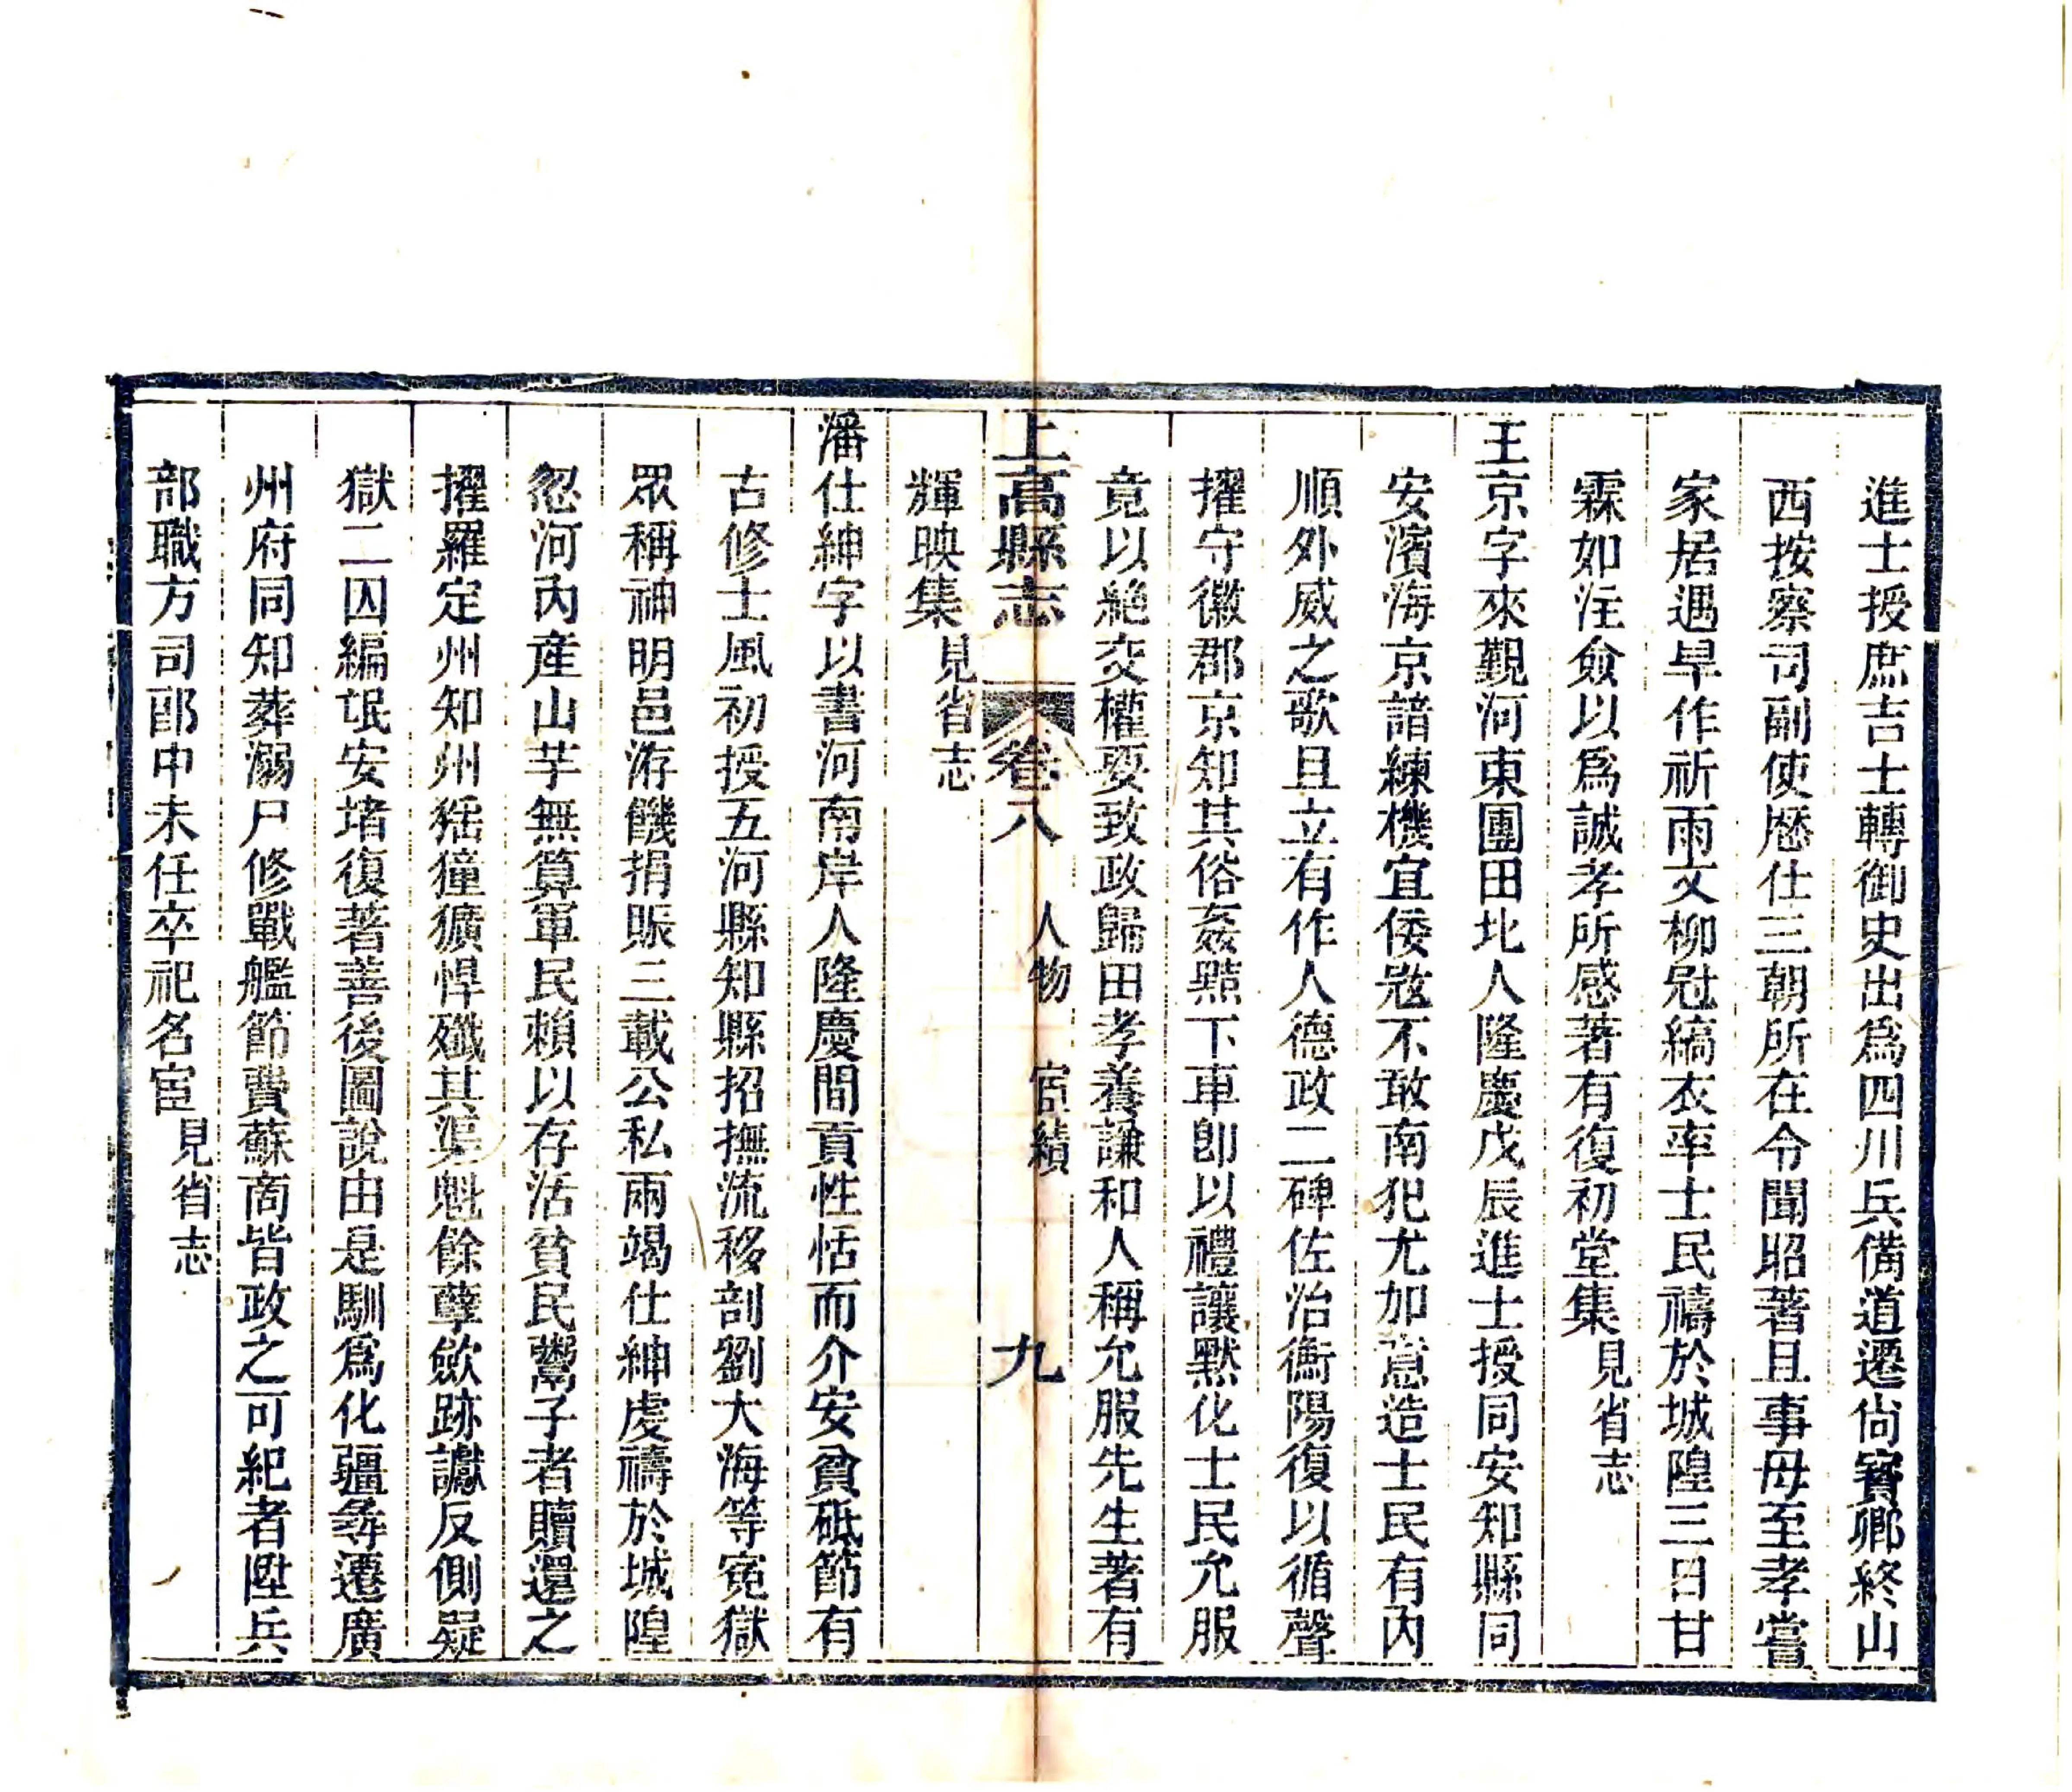 進士授庶吉士轉御史出爲四川兵備道遷尙寶卿終山
西按察司副使歴仕三朝所在令聞昭著且事母至孝嘗
家居遇旱作祈雨文柳冠縞衣率士民禱於城隍三日甘
霖如注僉以爲誠孝所感著有復初堂集見省志
王京字來覲河東團田北人隆慶戊辰進士授同安知縣同
安濱海京諳練機宜倭冦不敢南犯尤加意造士民有內
順外威之歌且立有作人德政二碑佐治衡陽復以循聲
擢守徽郡京知其俗姦黠下車卽以禮讓默化士民允服
竟以絕交權要致政歸田孝養謙和人稱允服先生著有
上高縣志 卷八 人物 宦績 九
輝映集見省志
潘仕紳字以書河南岸人隆慶間貢性恬而介安貧砥節有
古修士風初授五河縣知縣招撫流移剖劉大海等寃獄
眾稱神明邑洊饑捐賑三載公私兩竭仕紳虔禱於城隍
忽河內産山芋無算軍民賴以存活貧民鬻子者贖還之
擢羅定州知州猺獞獷悍殲其渠魁餘孽歛跡讞反側疑
獄二囚編氓安堵復著善後圖說由是馴爲化疆尋遷廣
州府同知葬溺尸修戰艦節費蘇商皆政之可紀者陞兵
部職方司郎中未任卒祀名宦見省志